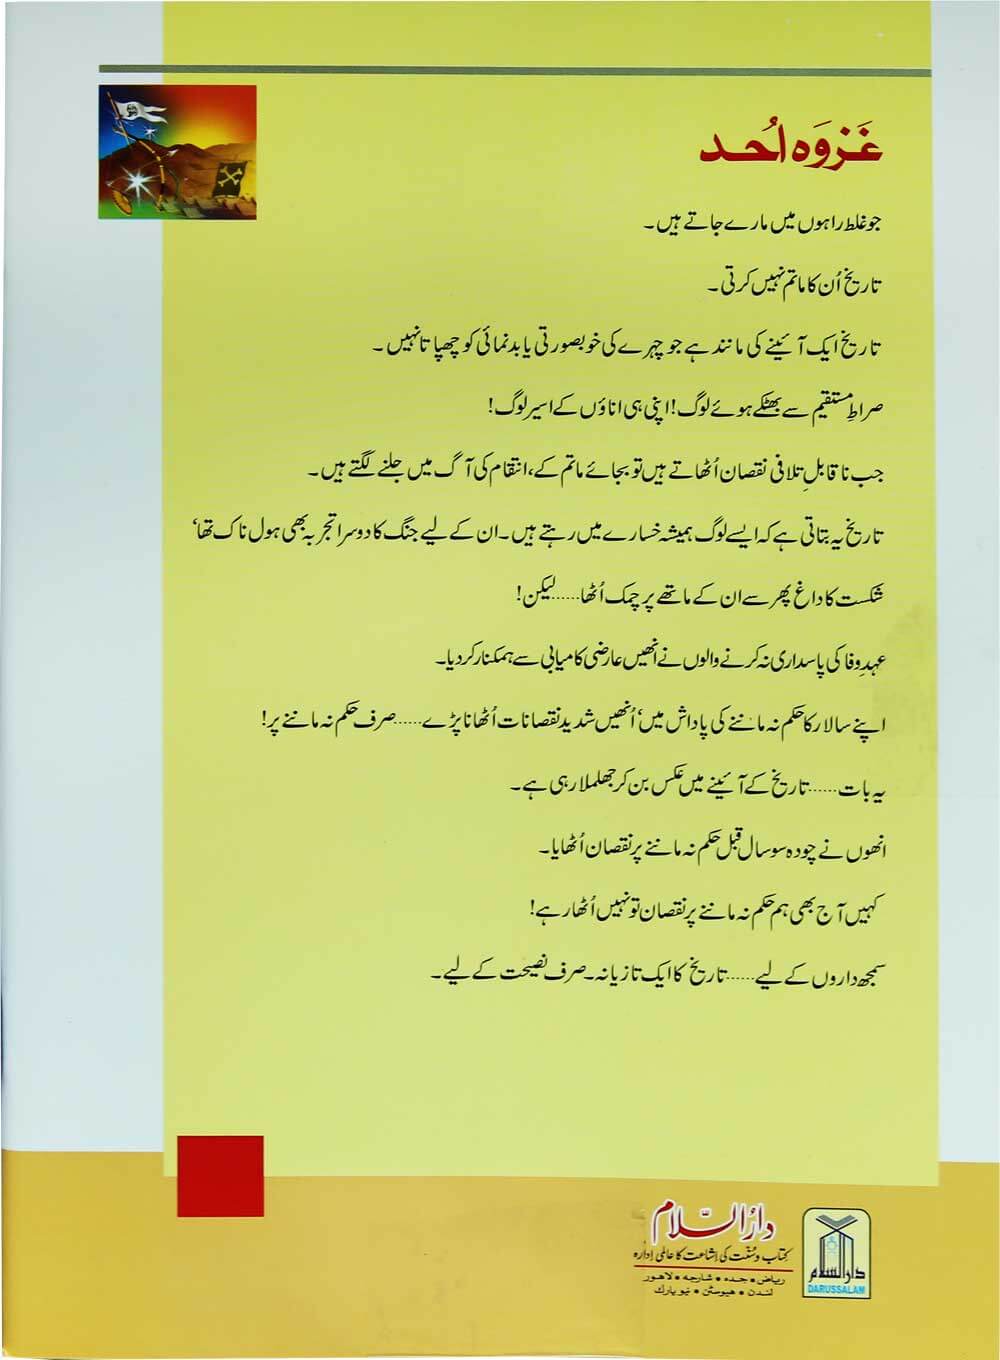 غَزوَہ اُحد
جو غلط راہوں میں مارے جاتے ہیں۔
تاریخ اُن کا ماتم نہیں کرتی۔
تاریخ ایک آئینے کی مانند ہے جو چہرے کی خوبصورتی یا بدنمائی کو چھپاتا نہیں۔
صراطِ مستقیم سے بھٹکے ہوئے لوگ! اپنی ہی اناؤں کے اسیر لوگ!
جب ناقابلِ تلافی نقصان اُٹھاتے ہیں تو بجائے ماتم کے، انتقام کی آگ میں جلنے لگتے ہیں۔
تاریخ یہ بتاتی ہے کہ ایسے لوگ ہمیشہ خسارے میں رہتے ہیں۔ ان کے لیے جنگ کا دوسرا تجربہ بھی ہول ناک تھا‘
شکست کا داغ پھر سے ان کے ماتھے پر چمک اُٹھا......لیکن!
عہدِ وفا کی پاسداری نہ کرنے والوں نے انھیں عارضی کامیابی سے ہمکنار کر دیا۔
اپنے سالار کا حکم نہ ماننے کی پاداش میں‘ اُنھیں شدید نقصانات اُٹھانا پڑے......صرف حکم نہ ماننے پر!
یہ بات......تاریخ کے آئینے میں عکس بن کر جھلملا رہی ہے۔
انھوں نے چودہ سو سال قبل حکم نہ ماننے پر نقصان اُٹھایا۔
کہیں آج بھی ہم حکم نہ ماننے پر نقصان تو نہیں اُٹھا رہے!
سمجھ داروں کے لیے......تاریخ کا ایک تازیانہ۔ صرف نصیحت کے لیے۔
دارُالسّلام
کتاب و سنّت کی اشاعت کا عالمی ادارہ
ریاض • جدہ • شارجہ • لاہور
لندن • ھیوسٹن • نیویارک
دارالسلام
DARUSSALAM